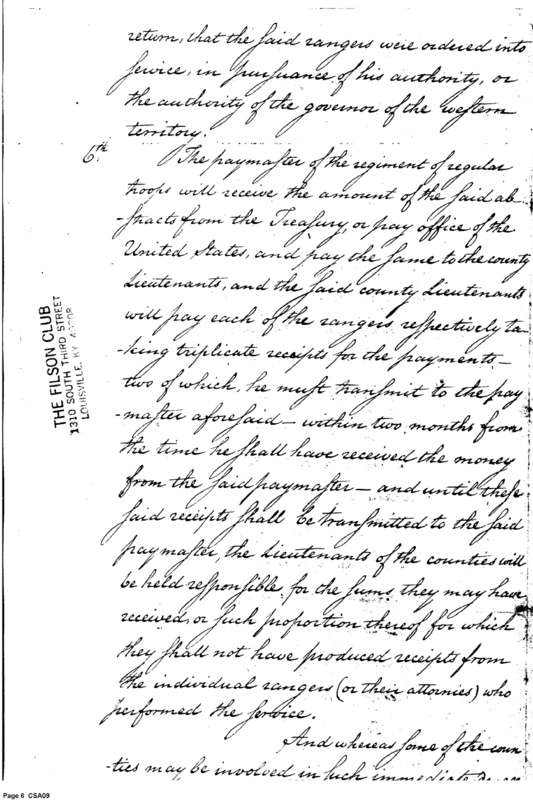 return, that the said rangers were ordered into
service, in pursuance of his authority, or
the authority of the governor of the western
territory.
6th. The paymaster of the regiment of regular
troops will receive the amount of the said ab
-stracts from the Treasury, or pay office of the
United States, and pay the same to the county
Lieutenants, and the said county Lieutenants
will pay each of the rangers respectively ta-
-king triplicate receipts for the payments –
two of which, he must transmit to the pay
-master aforesaid – within two months from
the time he shall have received the money
from the said paymaster – and until these
said receipts shall be transmitted to the said
paymaster, the Lieutenants of the counties will
be held responsible for the sums they may have
received, or such proportion thereof for which
they shall not have produced receipts from
the individual rangers (or their attornies) who
performed the service.
And whereas some of the coun
-ties may be involved in such immediate
THE FILSON CLUB
1310 SOUTH THIRD STREET
LOUISVILLE, KY 40208
Page 6 CSA09